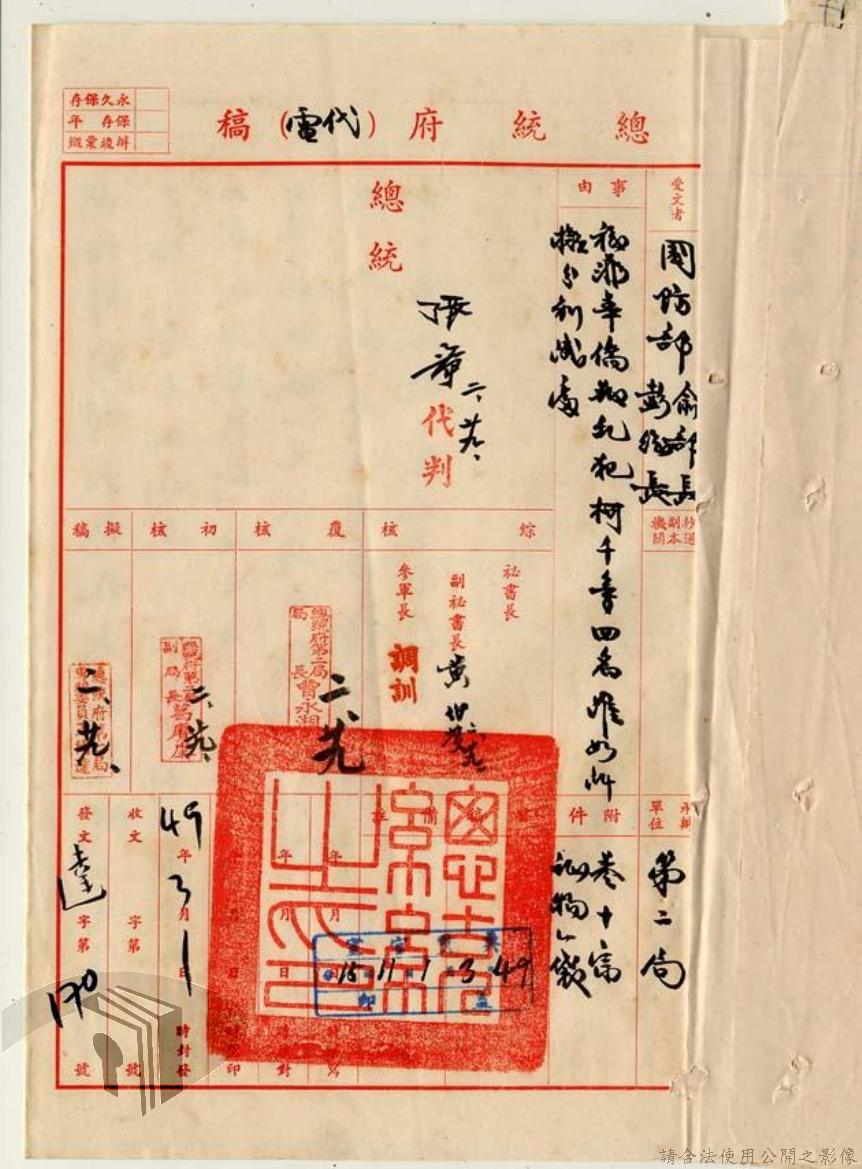 總統府(代電)稿
永久保存
保存 年
辦竣彙綴
受文者
國防部俞部長
彭總長
抄送副本機關
承辦單位
第二局
事由
旅菲華僑叛乱犯柯千等四名准如所
擬分別減處
附件
卷十宗
証物一袋
總統
張羣 二、廿九、
代判
綜核
祕書長
副祕書長
黃伯度
參軍長
調訓
覆核
總統府第二局
局長曹永湘
二、廿九
初核
副局長
二、廿九、
擬稿
二、廿九、
49年3月1日 時封發
收文 字第 號
發文 達 字第 170 號
年 月 日
49 3 1 11 15
請合法使用公開之影像